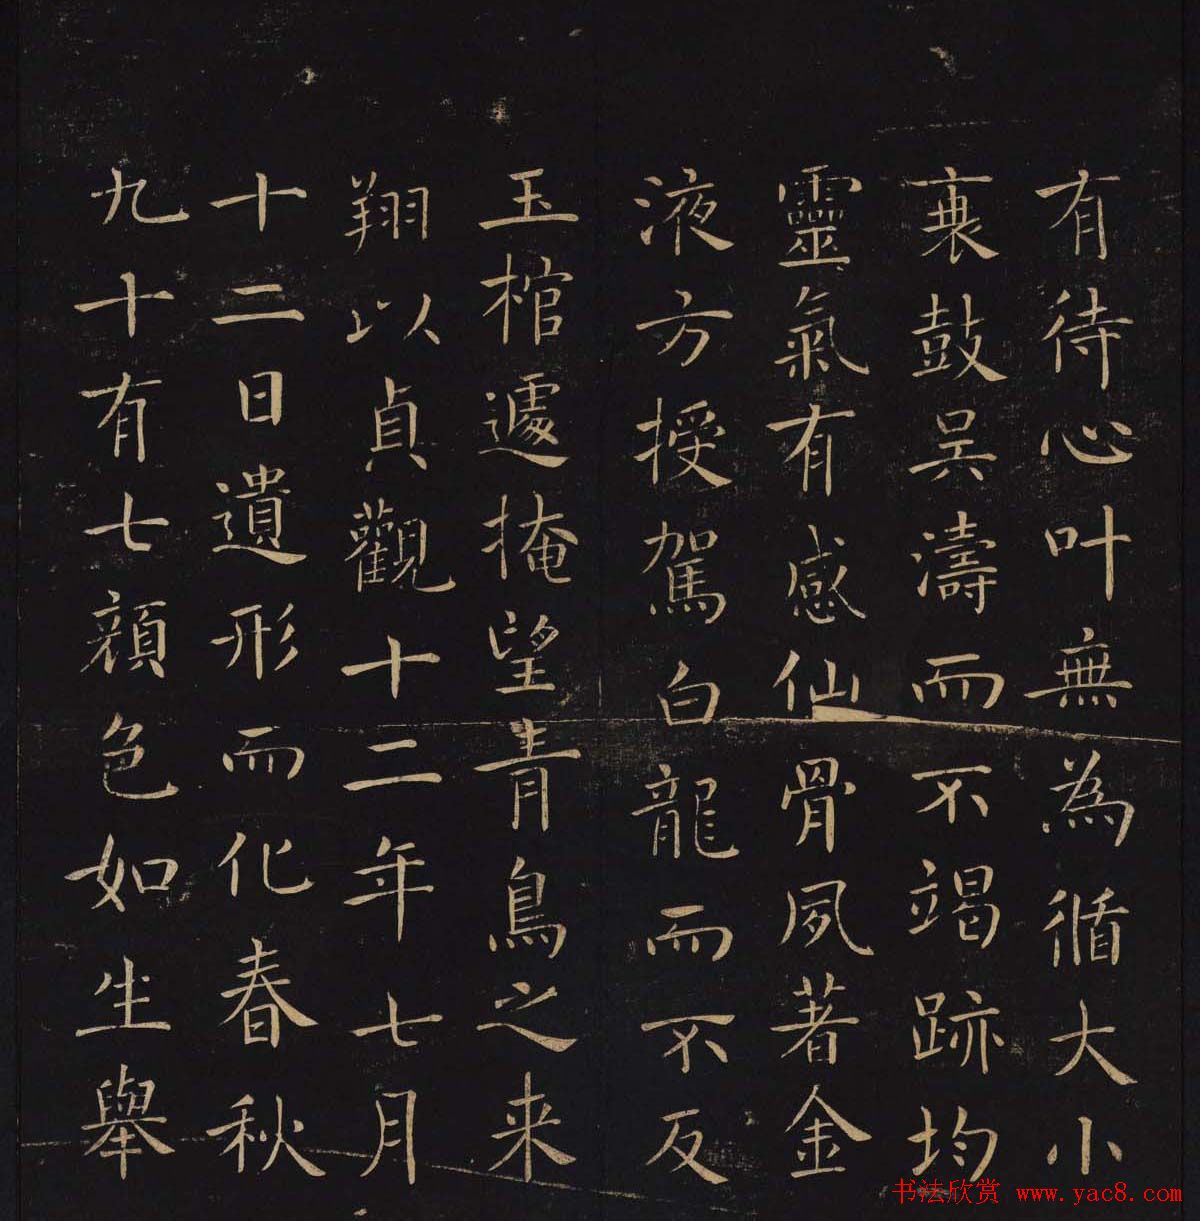 有待心叶無為循大小
裹鼓吴濤而不竭跡均
靈氣有感仙骨夙著金
液方授駕白龍而不反
玉棺遽掩望青鳥之来
翔以貞觀十二年七月
十二日遺形而化春秋
九十有七顔色如生舉
书法欣赏 www.yac8.com